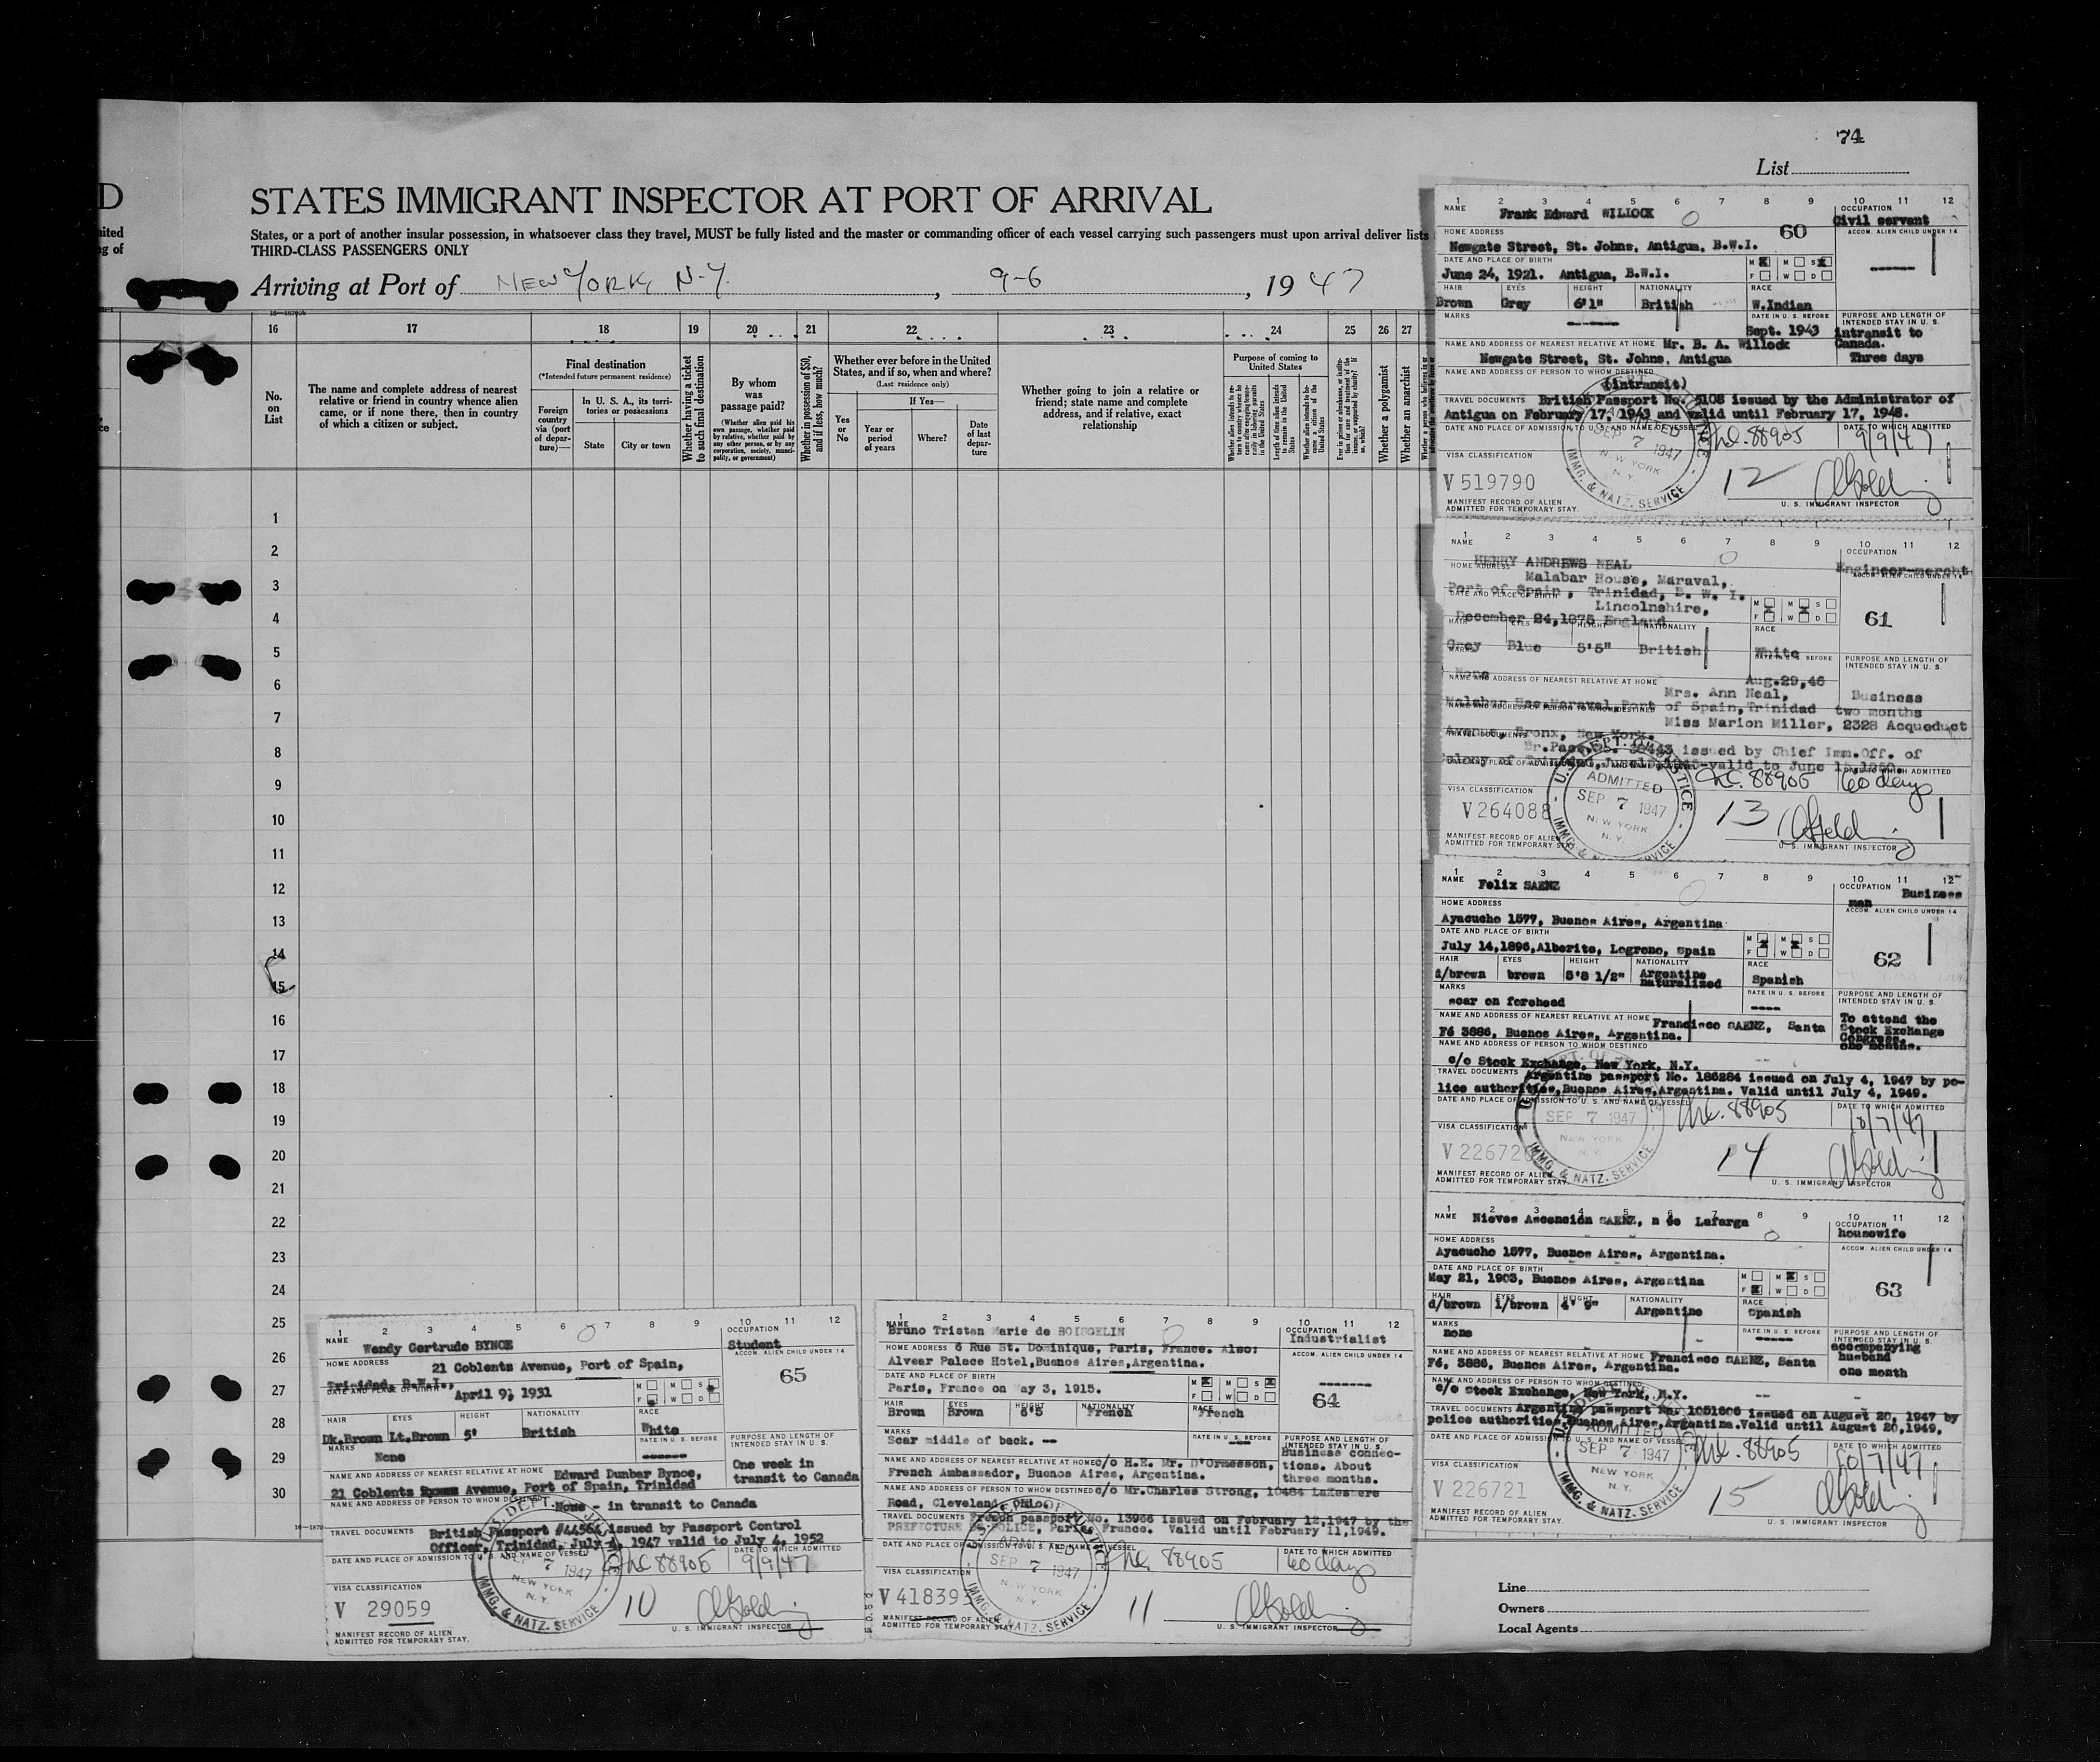 74
List
D
STATES IMMIGRANT INSPECTOR AT PORT OF ARRIVAL
States, or a port of another insular possession, in whatsoever class they travel, MUST be fully listed and the master or commanding officer of each vessel carrying such passengers must upon arrival deliver lists
THIRD-CLASS PASSENGERS ONLY
Arriving at Port of NEW YORK, N.Y. , 9-6 , 1947
16 17 18 19 20 21 22 23 24 25 26 27
No. on List
The name and complete address of nearest relative or friend in country whence alien came, or if none there, then in country of which a citizen or subject.
Final destination
(*Intended future permanent residence)
Foreign country via (port of departure)—
In U. S. A., its territories or possessions
State
City or town
Whether having a ticket to such final destination
By whom was passage paid?
(Whether alien paid his own passage, whether paid by relative, whether paid by any other person, or by any corporation, society, municipality, or government)
Whether in possession of $50, and if less, how much?
Whether ever before in the United States, and if so, when and where?
(Last residence only)
Yes or No
If Yes—
Year or period of years
Where?
Date of last departure
Whether going to join a relative or friend; state name and complete address, and if relative, exact relationship
Purpose of coming to United States
Length of time alien intends to remain in the United States
Whether a polygamist
Whether an anarchist
1
2
3
4
5
6
7
8
9
10
11
12
13
14
15
16
17
18
19
20
21
22
23
24
25
26
27
28
29
30
1 2 3 4 5 6 7 8 9 10 11 12
NAME Frank Edward WILLOCK
OCCUPATION Civil servant
60
HOME ADDRESS
Newgate Street, St. Johns, Antigua, B.W.I.
ACCOM. ALIEN CHILD UNDER 14
DATE AND PLACE OF BIRTH
June 24, 1921. Antigua, B.W.I.
M M S
F W D
HAIR EYES HEIGHT NATIONALITY RACE
Brown Grey 6'1" British W.Indian
MARKS
DATE IN U. S. BEFORE
Sept. 1943
PURPOSE AND LENGTH OF INTENDED STAY IN U. S.
intransit to Canada.
Three days
NAME AND ADDRESS OF NEAREST RELATIVE AT HOME Mr. B. A. Willock
Newgate Street, St. Johns, Antigua
NAME AND ADDRESS OF PERSON TO WHOM DESTINED
(intransit)
TRAVEL DOCUMENTS British Passport No. 5108 issued by the Administrator of
Antigua on February 17, 1943 and valid until February 17, 1948.
DATE AND PLACE OF ADMISSION TO U. S. AND NAME OF VESSEL
88905
DATE TO WHICH ADMITTED
9/9/47
SEP 7 1947
NEW YORK N. Y.
IMMG. & NATZ. SERVICE
VISA CLASSIFICATION
V 519790
12
MANIFEST RECORD OF ALIEN ADMITTED FOR TEMPORARY STAY.
U. S. IMMIGRANT INSPECTOR
1 2 3 4 5 6 7 8 9 10 11 12
NAME HENRY ANDREWS NEAL
OCCUPATION Engineer-mercht
HOME ADDRESS Malabar House, Maraval,
Port of Spain, Trinidad, B. W. I.
ACCOM. ALIEN CHILD UNDER 14
DATE AND PLACE OF BIRTH
Lincolnshire,
December 24,1875 England
M M S
F W D
61
HAIR EYES HEIGHT NATIONALITY RACE
Grey Blue 5'5" British White
MARKS None
DATE IN U. S. BEFORE
Aug.29,46
PURPOSE AND LENGTH OF INTENDED STAY IN U. S.
Business
two months
NAME AND ADDRESS OF NEAREST RELATIVE AT HOME
Mrs. Ann Neal,
Malabar Hse.Maraval,Port of Spain,Trinidad
NAME AND ADDRESS OF PERSON TO WHOM DESTINED
Miss Marion Miller, 2328 Acqueduct
Avenue, Bronx, New York.
TRAVEL DOCUMENTS
issued by Chief Imm.Off. of
DATE TO WHICH ADMITTED
88905 60 days
U. S. DEPT. OF JUSTICE
ADMITTED
SEP 7 1947
NEW YORK N. Y.
IMMG. & NATZ. SERVICE
VISA CLASSIFICATION
V 264088
13
MANIFEST RECORD OF ALIEN ADMITTED FOR TEMPORARY STAY
U. S. IMMIGRANT INSPECTOR
1 2 3 4 5 6 7 8 9 10 11 12
NAME Felix SAENZ
OCCUPATION Business man
HOME ADDRESS
Ayacucho 1577, Buenos Aires, Argentina
ACCOM. ALIEN CHILD UNDER 14
DATE AND PLACE OF BIRTH
July 14,1896,Alberite, Logrono, Spain
M M S
F W D
62
HAIR EYES HEIGHT NATIONALITY RACE
d/brown brown 5'8 1/2" Argentine naturalized Spanish
MARKS
scar on forehead
DATE IN U. S. BEFORE
PURPOSE AND LENGTH OF INTENDED STAY IN U. S.
To attend the Stock Exchange Congress.
one months.
NAME AND ADDRESS OF NEAREST RELATIVE AT HOME Francisco SAENZ, Santa
Fé 3886, Buenos Aires, Argentina.
NAME AND ADDRESS OF PERSON TO WHOM DESTINED
c/o Stock Exchange, New York, N.Y.
TRAVEL DOCUMENTS Argentine passport No. 186284 issued on July 4, 1947 by po-
lice authorities,Buenos Aires,Argentina. Valid until July 4, 1949.
DATE AND PLACE OF ADMISSION TO U. S. AND NAME OF VESSEL
88905
DATE TO WHICH ADMITTED
10/7/47
SEP 7 1947
NEW YORK N. Y.
IMMG. & NATZ. SERVICE
VISA CLASSIFICATION
V 226720
14
MANIFEST RECORD OF ALIEN ADMITTED FOR TEMPORARY STAY
U. S. IMMIGRANT INSPECTOR
1 2 3 4 5 6 7 8 9 10 11 12
NAME Nieves Ascención SAENZ, n de Lafarga
OCCUPATION housewife
HOME ADDRESS
Ayacucho 1577, Buenos Aires, Argentina.
ACCOM. ALIEN CHILD UNDER 14
DATE AND PLACE OF BIRTH
May 21, 1903, Buenos Aires, Argentina
M M S
F W D
63
HAIR EYES HEIGHT NATIONALITY RACE
d/brown l/brown 4' 9" Argentine Spanish
MARKS
none
DATE IN U. S. BEFORE
PURPOSE AND LENGTH OF INTENDED STAY IN U. S.
accompanying husband
one month
NAME AND ADDRESS OF NEAREST RELATIVE AT HOME Francisco SAENZ, Santa
Fé, 3886, Buenos Aires, Argentina.
NAME AND ADDRESS OF PERSON TO WHOM DESTINED
c/o Stock Exchange, New York, N.Y.
TRAVEL DOCUMENTS Argentine passport No. 1051606 issued on August 20, 1947 by
police authorities,Buenos Aires,Argentina.Valid until August 20,1949.
DATE AND PLACE OF ADMISSION TO U. S. AND NAME OF VESSEL
88905
DATE TO WHICH ADMITTED
10/7/47
ADMITTED
SEP 7 1947
NEW YORK N. Y.
IMMG. & NATZ. SERVICE
VISA CLASSIFICATION
V 226721
15
MANIFEST RECORD OF ALIEN ADMITTED FOR TEMPORARY STAY.
U. S. IMMIGRANT INSPECTOR
1 2 3 4 5 6 7 8 9 10 11 12
NAME Wendy Gertrude BYNOE
OCCUPATION Student
HOME ADDRESS 21 Coblentz Avenue, Port of Spain,
Trinidad, B.W.I.,
ACCOM. ALIEN CHILD UNDER 14
65
DATE AND PLACE OF BIRTH April 9, 1931
M M S
F W D
HAIR EYES HEIGHT NATIONALITY RACE
Dk.Brown Lt.Brown 5' British White
MARKS None
DATE IN U. S. BEFORE
PURPOSE AND LENGTH OF INTENDED STAY IN U. S.
One week in
transit to Canada
NAME AND ADDRESS OF NEAREST RELATIVE AT HOME Edward Dunbar Bynoe,
21 Coblentz Avenue, Port of Spain, Trinidad
NAME AND ADDRESS OF PERSON TO WHOM DESTINED None - in transit to Canada
TRAVEL DOCUMENTS British Passport #44564 issued by Passport Control
Officer, Trinidad, July 4, 1947 valid to July 4, 1952
DATE AND PLACE OF ADMISSION TO U. S. AND NAME OF VESSEL
88905
DATE TO WHICH ADMITTED
9/9/47
7 1947
NEW YORK N. Y.
IMMG. & NATZ. SERVICE
VISA CLASSIFICATION
V 29059
10
MANIFEST RECORD OF ALIEN ADMITTED FOR TEMPORARY STAY.
U. S. IMMIGRANT INSPECTOR
1 2 3 4 5 6 7 8 9 10 11 12
NAME Bruno Tristan Marie de BOISGELIN
OCCUPATION Industrialist
HOME ADDRESS 6 Rue St. Dominique, Paris, France. Also:
Alvear Palace Hotel,Buenos Aires,Argentina.
ACCOM. ALIEN CHILD UNDER 14
DATE AND PLACE OF BIRTH
Paris, France on May 3, 1915.
M M S
F W D
64
HAIR EYES HEIGHT NATIONALITY RACE
Brown Brown 6'5 French French
MARKS
Scar middle of back. --
DATE IN U. S. BEFORE
PURPOSE AND LENGTH OF INTENDED STAY IN U. S.
Business connec-
tions. About
three months.
NAME AND ADDRESS OF NEAREST RELATIVE AT HOME c/o H.E. Mr. D'Ormesson,
French Ambassador, Buenos Aires, Argentina.
NAME AND ADDRESS OF PERSON TO WHOM DESTINED c/o Mr.Charles Strong, 10484 Lakeshore
Road, Cleveland, Ohio
TRAVEL DOCUMENTS French passport No. 13966 issued on February 12,1947 by the
PREFECTURE de POLICE, Paris, France. Valid until February 11,1949.
DATE AND PLACE OF ADMISSION TO U. S. AND NAME OF VESSEL
88905
DATE TO WHICH ADMITTED
60 days
SEP 7 1947
NEW YORK N. Y.
IMMG. & NATZ. SERVICE
VISA CLASSIFICATION
V 418393
11
MANIFEST RECORD OF ALIEN ADMITTED FOR TEMPORARY STAY
U. S. IMMIGRANT INSPECTOR
Line
Owners
Local Agents